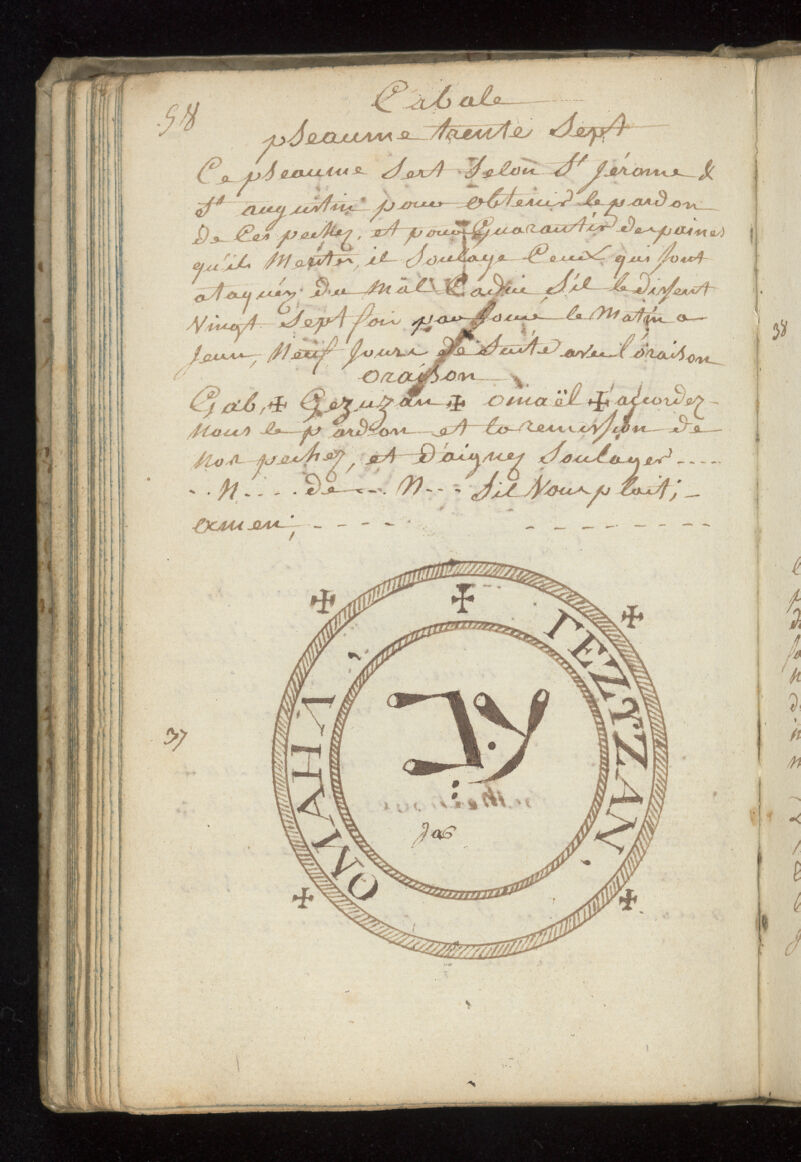 58
Cabale
pseaume trente Sept
Ce pseaume Sert Selon St Jérome &
St augustin pour obtenir le pardon
de Ces pechez, et pour Guarantir des paines
qu'ils Meriter, il Soulage Ceux qui sont
ataquéz du Mal Caduc S'il le disent
Vingt Sept fois par Jour le Matin a
Jeun, Neuf Jours de Suite avec l'oraison
oraison
Gab, ✠ Gezuzan, ✠ omaël ✠ accordez-
Nous le pardon et la remission de
Nos pechez, et d'aignez Soulager ----
-- N ---- de --- N --- Sil Vous plait; -
exmen; - - - - - - - - - - -
ΓEZYZAN
OMAHΛ
עב
37
38